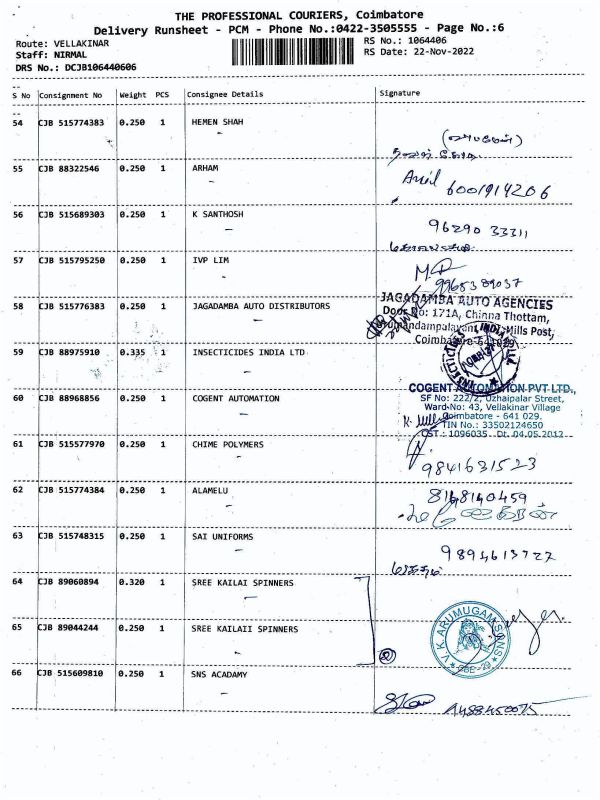 THE PROFESSIONAL COURIERS, Coimbatore
Delivery Runsheet - PCM - Phone No.:0422-3505555 - Page No.:6
Route: VELLAKINAR
RS No.: 1064406
Staff: NIRMAL
RS Date: 22-Nov-2022
DRS No.: DCJB106440606
S No Consignment No Weight PCS Consignee Details Signature
54 CJB 515774383 0.250 1 HEMEN SHAH
55 CJB 88322546 0.250 1 ARHAM
6001914206
56 CJB 515689303 0.250 1 K SANTHOSH
96290 33311
57 CJB 515795250 0.250 1 IVP LIM
9965389037
58 CJB 515776383 0.250 1 JAGADAMBA AUTO DISTRIBUTORS
JAGADAMBA AUTO AGENCIES
Door No: 171A, Chinna Thottam,
Mills Post,
Coimbatore-641029
59 CJB 88975910 0.335 1 INSECTICIDES INDIA LTD
60 CJB 88968856 0.250 1 COGENT AUTOMATION
COGENT AUTOMATION PVT LTD.,
SF No: 222/2, Uzhaipalar Street,
Ward No: 43, Vellakinar Village
Coimbatore - 641 029.
TIN No.: 33502124650
CST.: 1096035 Dt. 04.05.2012
61 CJB 515577970 0.250 1 CHIME POLYMERS
9841631523
62 CJB 515774384 0.250 1 ALAMELU
8148140459
63 CJB 515748315 0.250 1 SAI UNIFORMS
9894613727
64 CJB 89060894 0.320 1 SREE KAILAI SPINNERS
65 CJB 89044244 0.250 1 SREE KAILAII SPINNERS
V.K. ARUMUGAM SONS
CBE-29
66 CJB 515609810 0.250 1 SNS ACADAMY